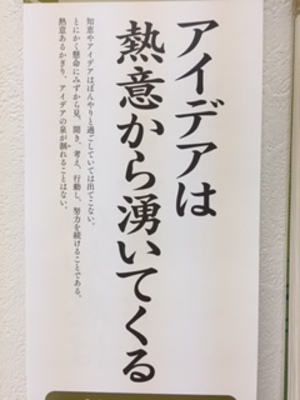 アイデアは
熱意から湧いてくる
知恵やアイデアはぼんやりと過ごしていては出てこない。
とにかく懸命にみずから見、聞き、考え、行動し、努力を続けることである。
熱意あるかぎり、アイデアの泉が涸れることはない。